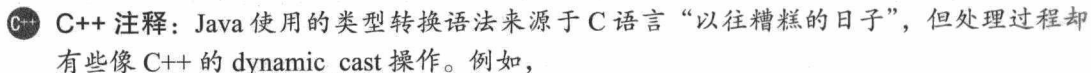 C++ C++ 注释：Java 使用的类型转换语法来源于 C 语言“以往糟糕的日子”，但处理过程却
有些像 C++ 的 dynamic cast 操作。例如，